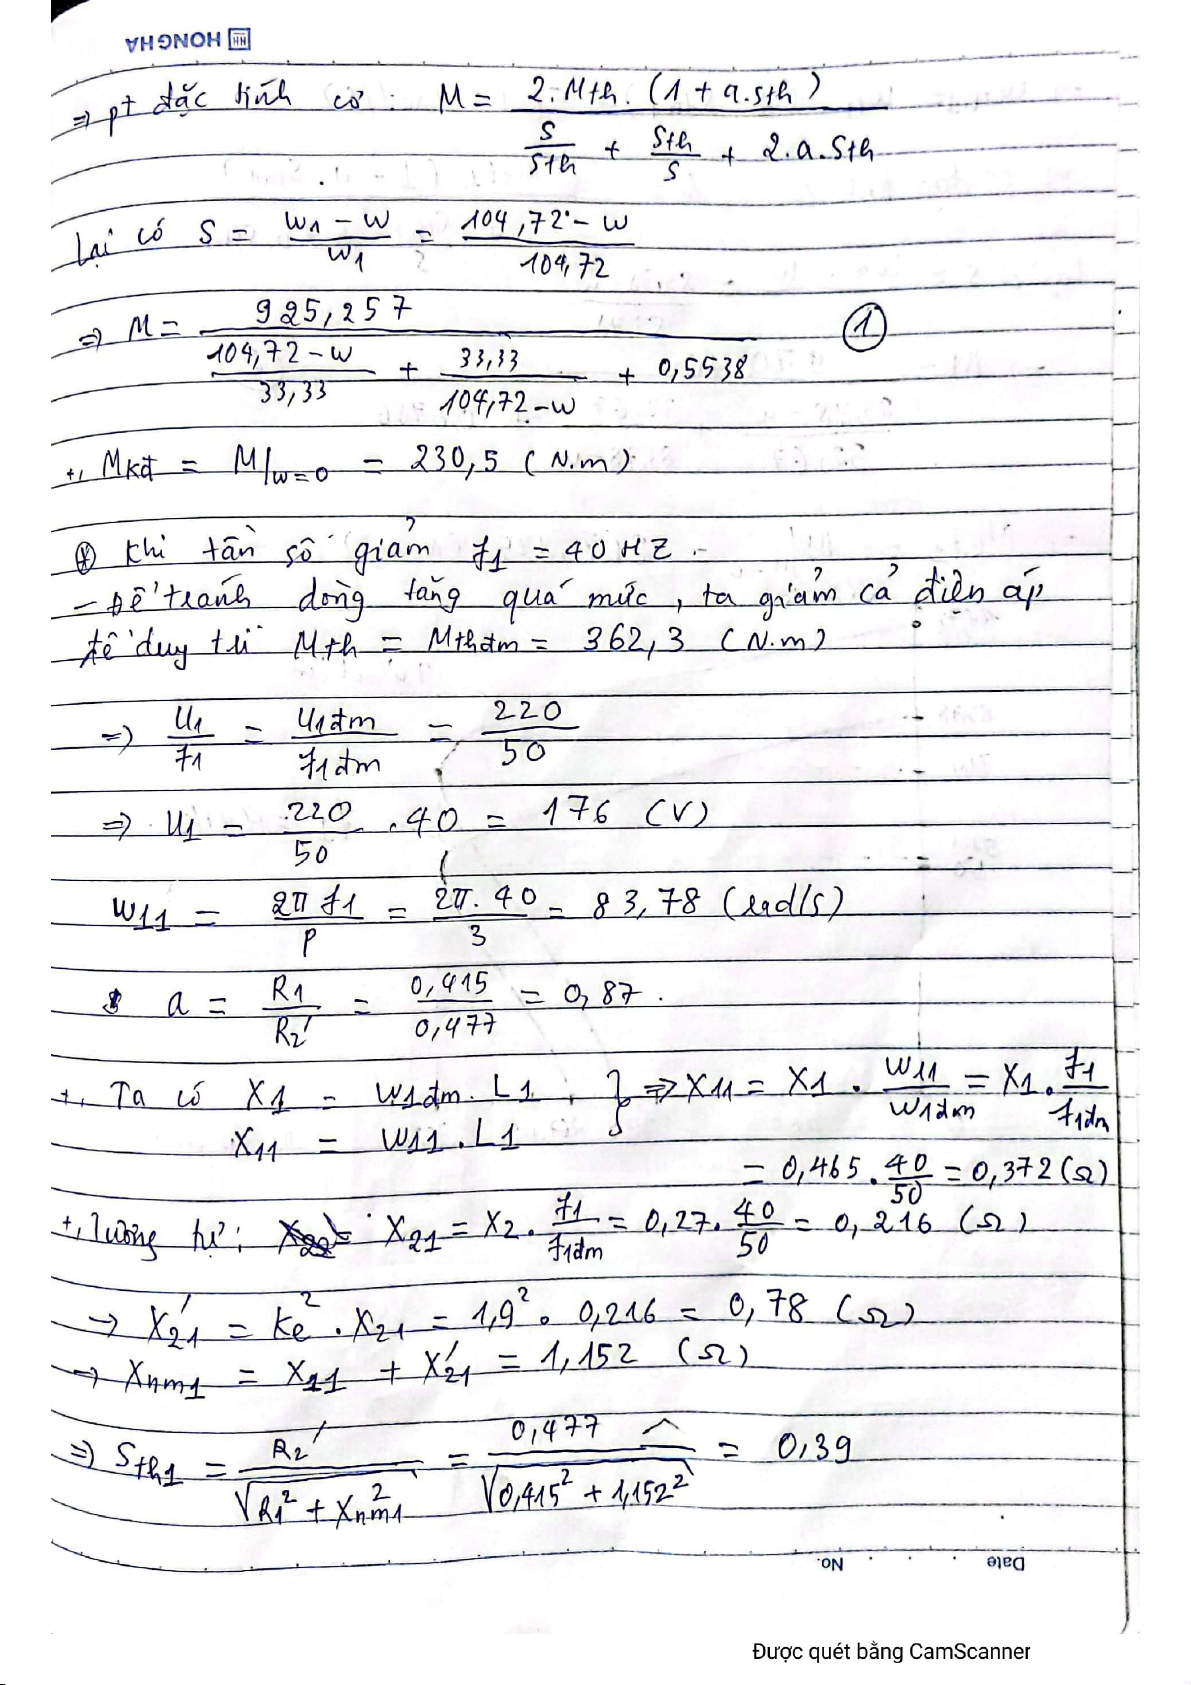 HONG HA
⇒ pt đặc tính cơ : M = 2.Mth.(1 + a.sth) / (s/sth + sth/s + 2.a.sth)
Lại có S = (w1 − w)/w1 = (104,72 − w)/104,72
⇒ M = 925,257 / ((104,72 − w)/33,33 + 33,33/(104,72 − w) + 0,5538) ①
+, Mkđ = M/w=0 = 230,5 (N.m)
⊛ Khi tần số giảm f1 = 40 HZ
– Để tránh dòng tăng quá mức, ta giảm cả điện áp
để duy trì Mth = Mthđm = 362,3 (N.m)
⇒ U1/f1 = U1đm/f1đm = 220/50
⇒ U1 = 220/50 . 40 = 176 (V)
W11 = 2π f1/p = 2π.40/3 = 83,78 (rad/s)
a = R1/R2' = 0,415/0,477 = 0,87.
+, Ta có X1 = W1đm.L1 } ⇒ X11 = X1 . W11/W1đm = X1 . f1/f1đm
X11 = W11.L1
= 0,465 . 40/50 = 0,372 (Ω)
+, Tương tự: X21 = X2 . f1/f1đm = 0,27 . 40/50 = 0,216 (Ω)
→ X21' = Ke² . X21 = 1,9² . 0,216 = 0,78 (Ω)
→ Xnm1 = X11 + X21' = 1,152 (Ω)
⇒ Sth1 = R2' / √(R1² + Xnm1²) = 0,477 / √(0,415² + 1,152²) = 0,39
No. Date
Được quét bằng CamScanner